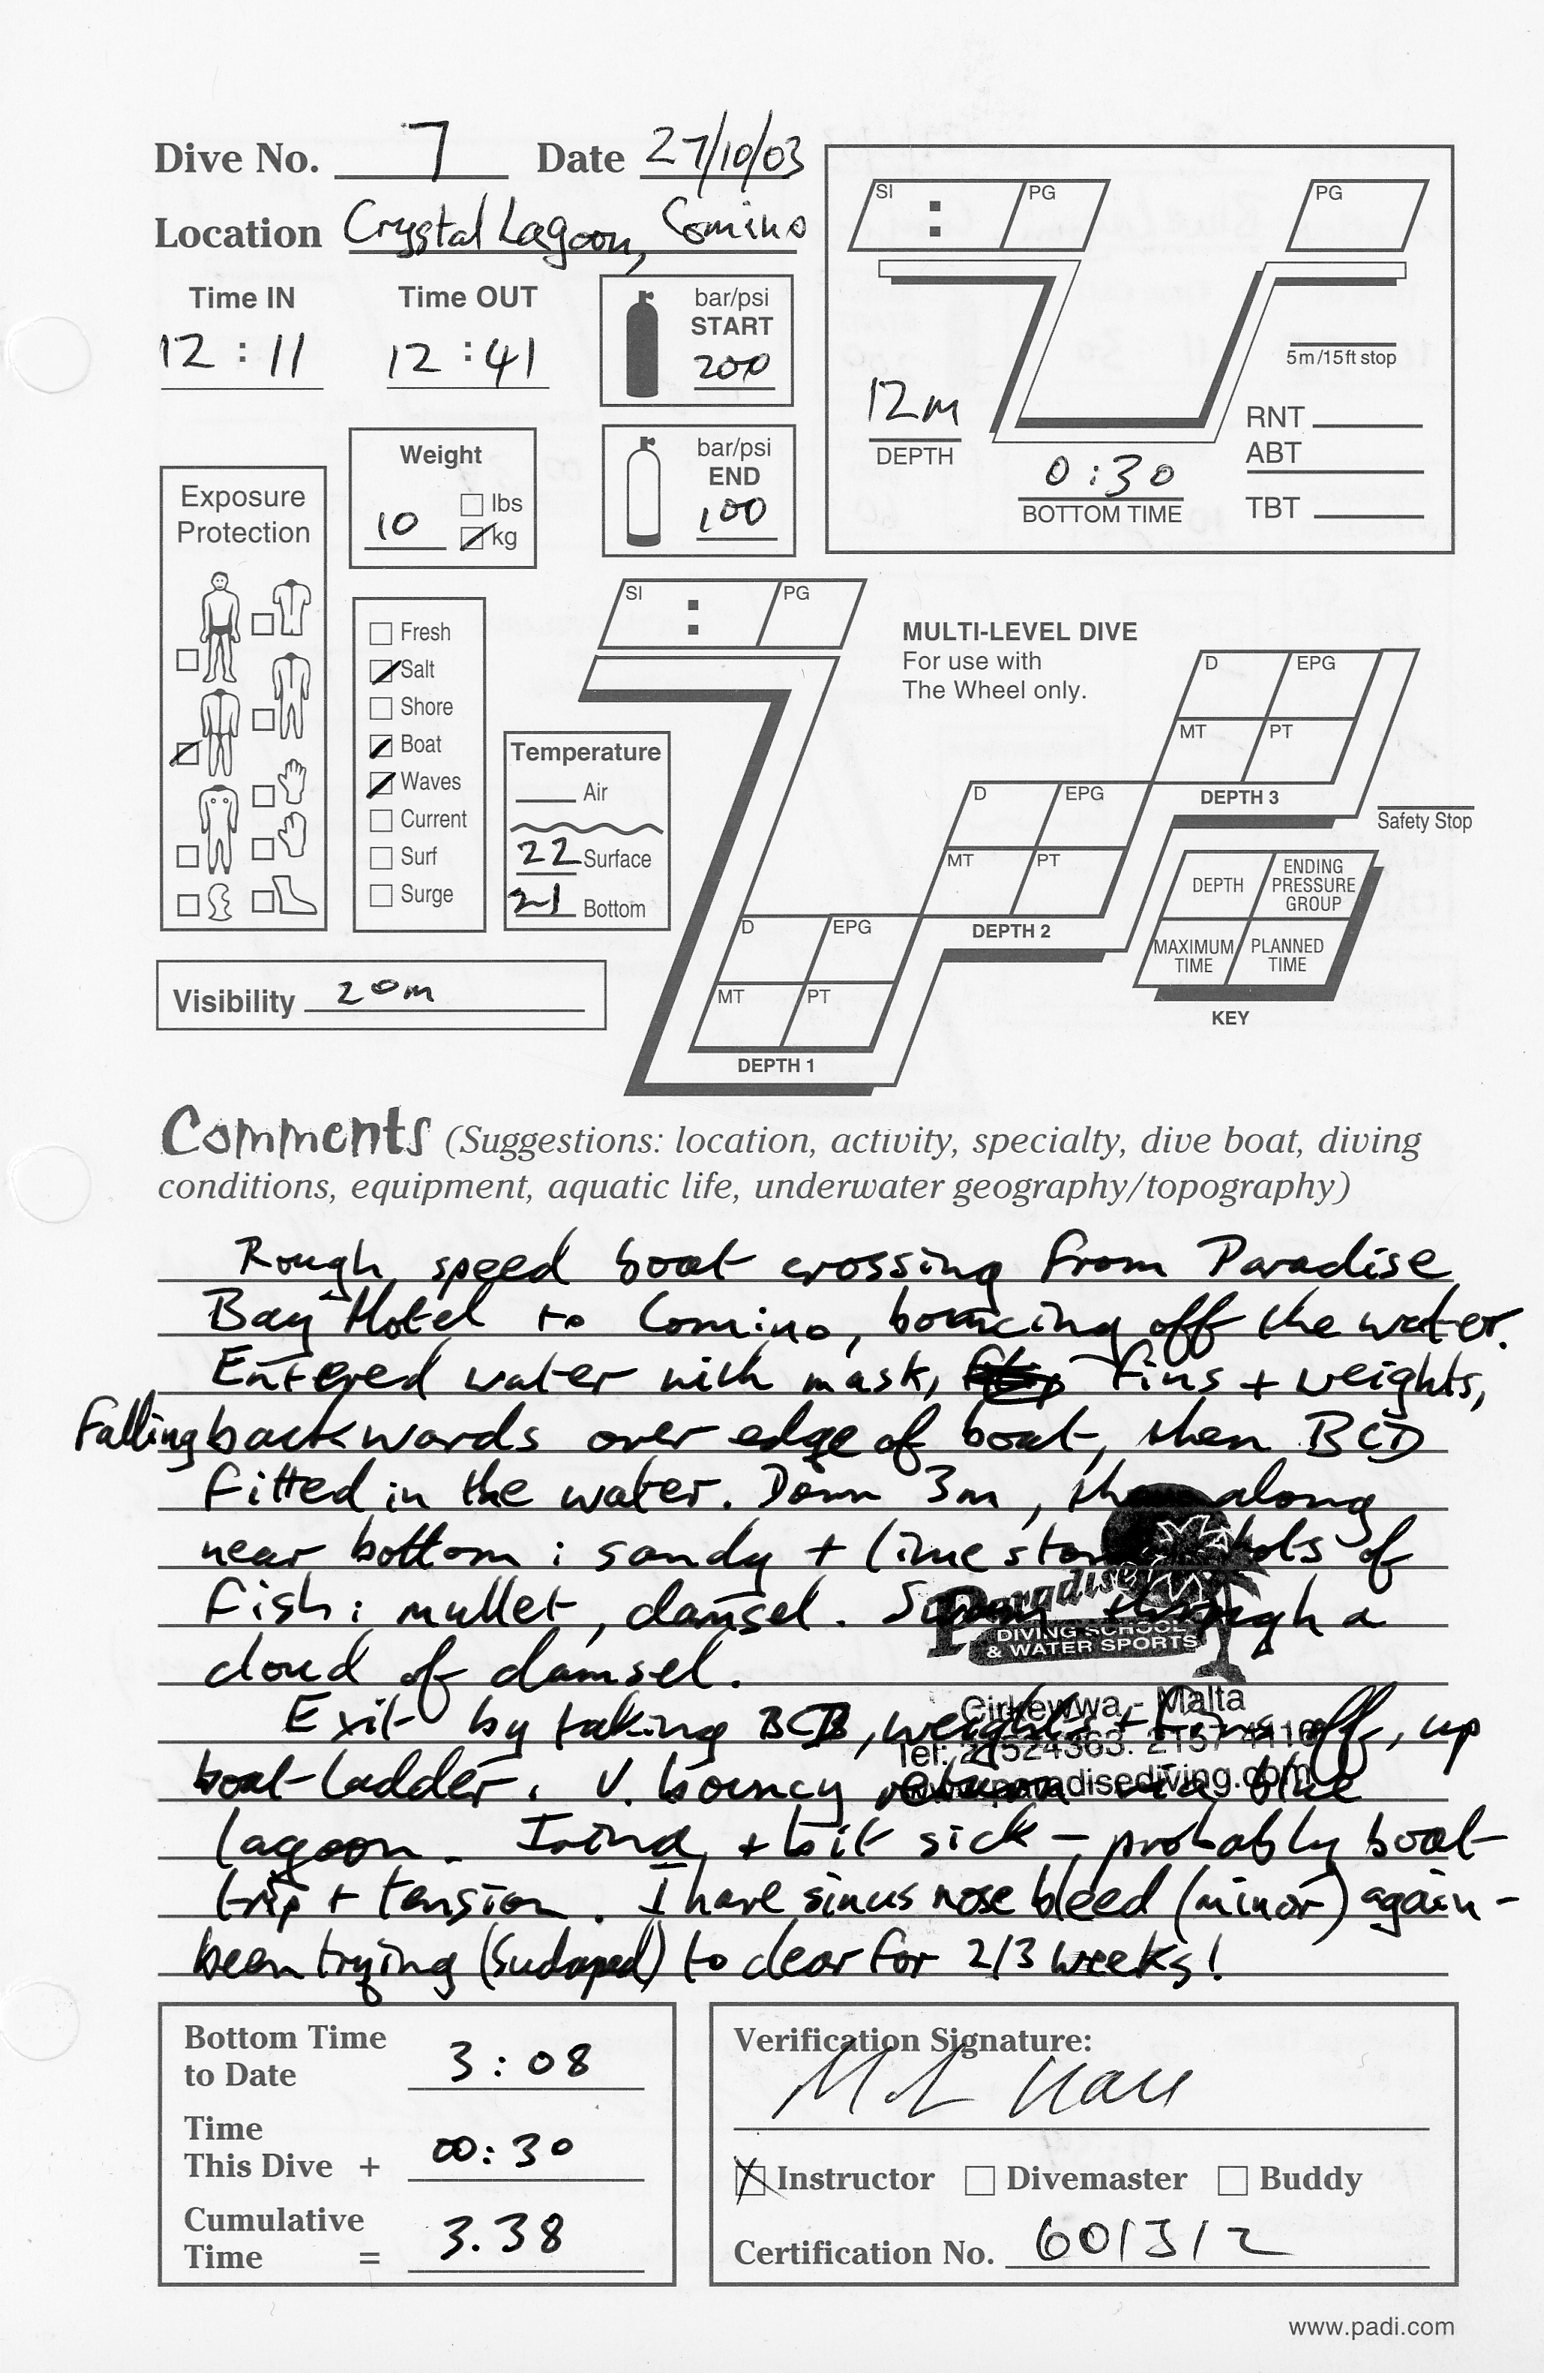 Dive No. 7 Date 27/10/03
Location Crystal Lagoon, Comino
Time IN Time OUT
12 : 11 12 : 41
bar/psi
START
200
bar/psi
END
100
SI : PG PG
5m/15ft stop
12m
DEPTH
0:30
BOTTOM TIME
RNT
ABT
TBT
Weight
lbs
10 kg
Exposure
Protection
Fresh
Salt
Shore
Boat
Waves
Current
Surf
Surge
Temperature
Air
22 Surface
21 Bottom
Visibility 20m
SI : PG
MULTI-LEVEL DIVE
For use with
The Wheel only.
D EPG
MT PT
DEPTH 3
D EPG
MT PT
DEPTH 2
D EPG
MT PT
DEPTH 1
Safety Stop
DEPTH ENDING PRESSURE GROUP
MAXIMUM TIME PLANNED TIME
KEY
Comments (Suggestions: location, activity, specialty, dive boat, diving
conditions, equipment, aquatic life, underwater geography/topography)
Rough speed boat crossing from Paradise
Bay Hotel to Comino, bouncing off the water.
Entered water with mask, fins + weights,
falling backwards over edge of boat, then BCD
fitted in the water. Down 3m, then along
near bottom : sandy + limestone. Lots of
fish : mullet, damsel. Swam through a
cloud of damsel.
Exit by taking BCD, weights + fins off, up
boat-ladder. V. bouncy return via blue
lagoon. Irina + bit sick – probably boat
trip + tension. I have sinus nose bleed (minor) again -
been trying (Sudaped) to clear for 2/3 weeks!
Paradise
DIVING SCHOOL
& WATER SPORTS
Cirkewwa - Malta
www.paradisediving.com
Bottom Time
to Date 3 : 08
Time
This Dive + 00:30
Cumulative
Time = 3.38
Verification Signature:
Instructor Divemaster Buddy
Certification No. 601312
www.padi.com